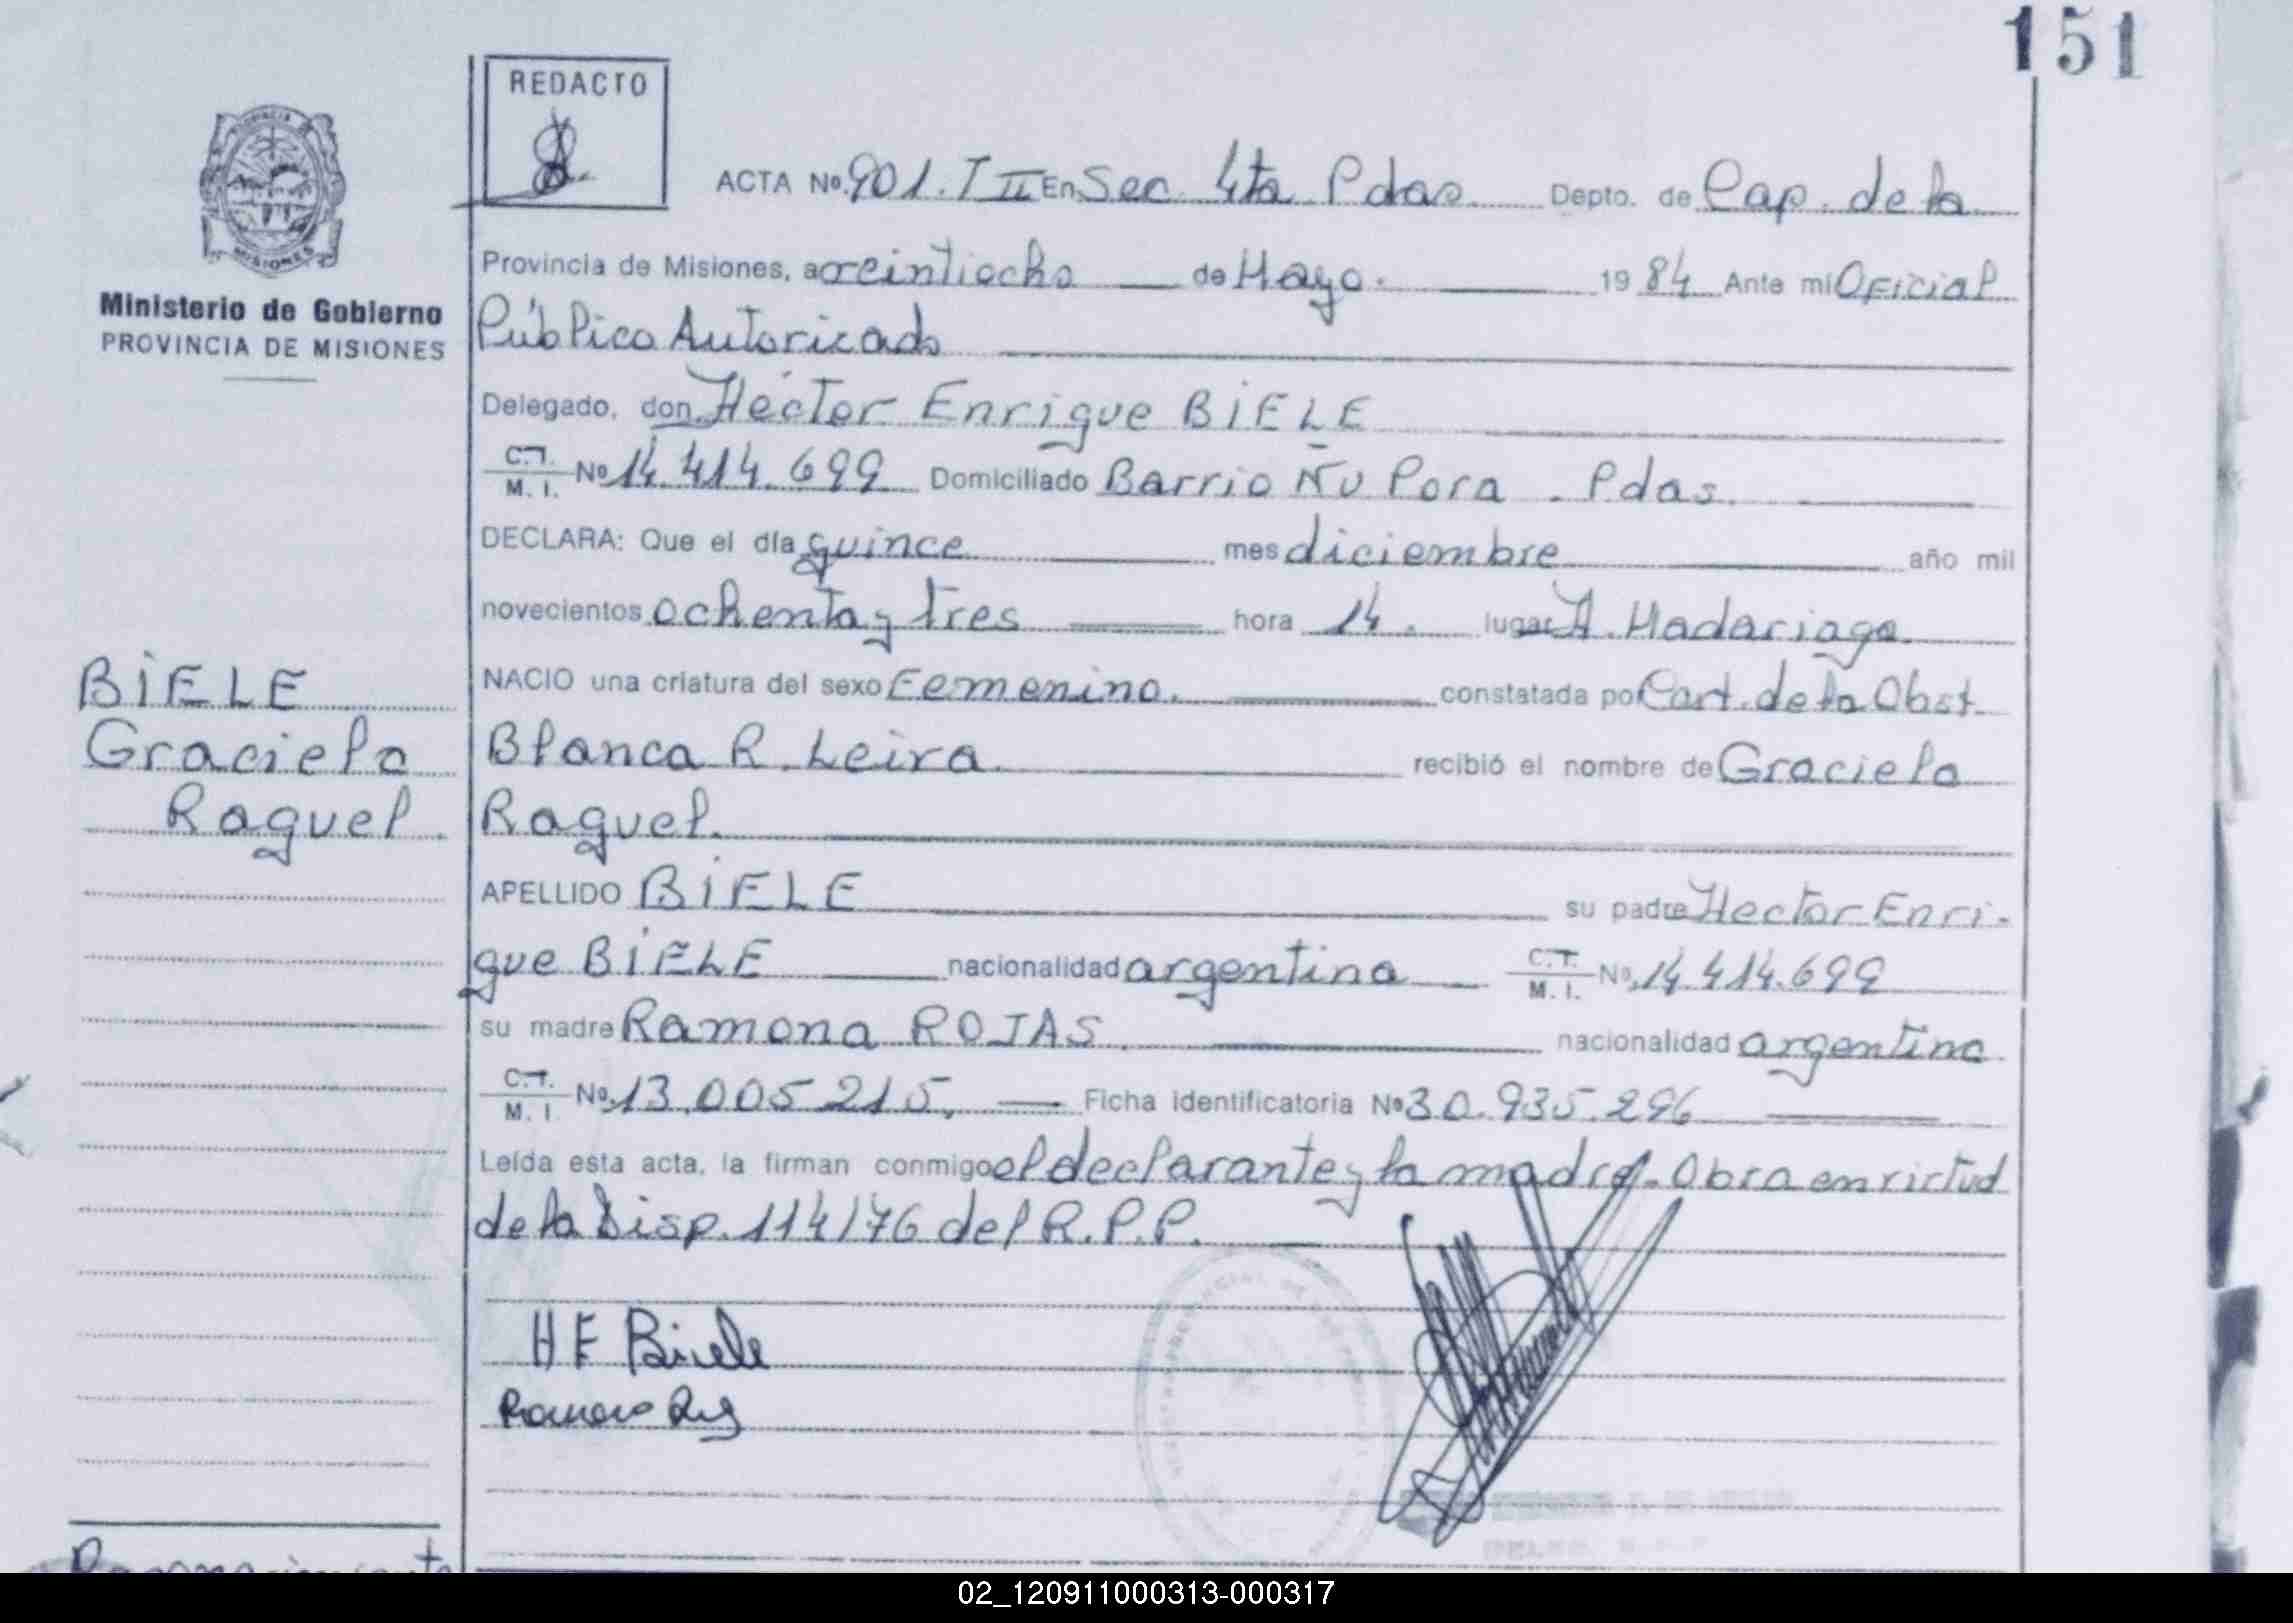 151
REDACTO
ACTA Nº 901. T II En Sec. 4ta Pdas. Depto. de Cap. de la
Provincia de Misiones, a veintiocho de Mayo. 1984 Ante mi Oficial
Público Autorizado
Ministerio de Gobierno
PROVINCIA DE MISIONES
Delegado, don Héctor Enrique BIELE
C.I. M. I. Nº 14.414.699 Domiciliado Barrio Ñu Pora - Pdas.
DECLARA: Que el día quince mes diciembre año mil
novecientos ochenta y tres hora 14. lugar H. Madariaga.
NACIO una criatura del sexo Femenino. constatada por Cert. de la Obst.
Blanca R. Leira recibió el nombre de Graciela
Raquel.
BIELE
Graciela
Raquel.
APELLIDO BIELE su padre Hector Enri-
que BIELE nacionalidad argentina C.I. M. I. Nº 14.414.699
su madre Ramona ROJAS. nacionalidad argentina
C.I. M. I. Nº 13.005.215. Ficha identificatoria Nº 30.935.296
Leída esta acta, la firman conmigo el declarante y la madre. Obra en virtud
de la Disp. 114/76 del R.P.P.
H E Biele
02_120911000313-000317